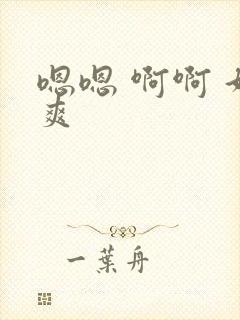 嗯嗯 啊啊
爽
一葉舟